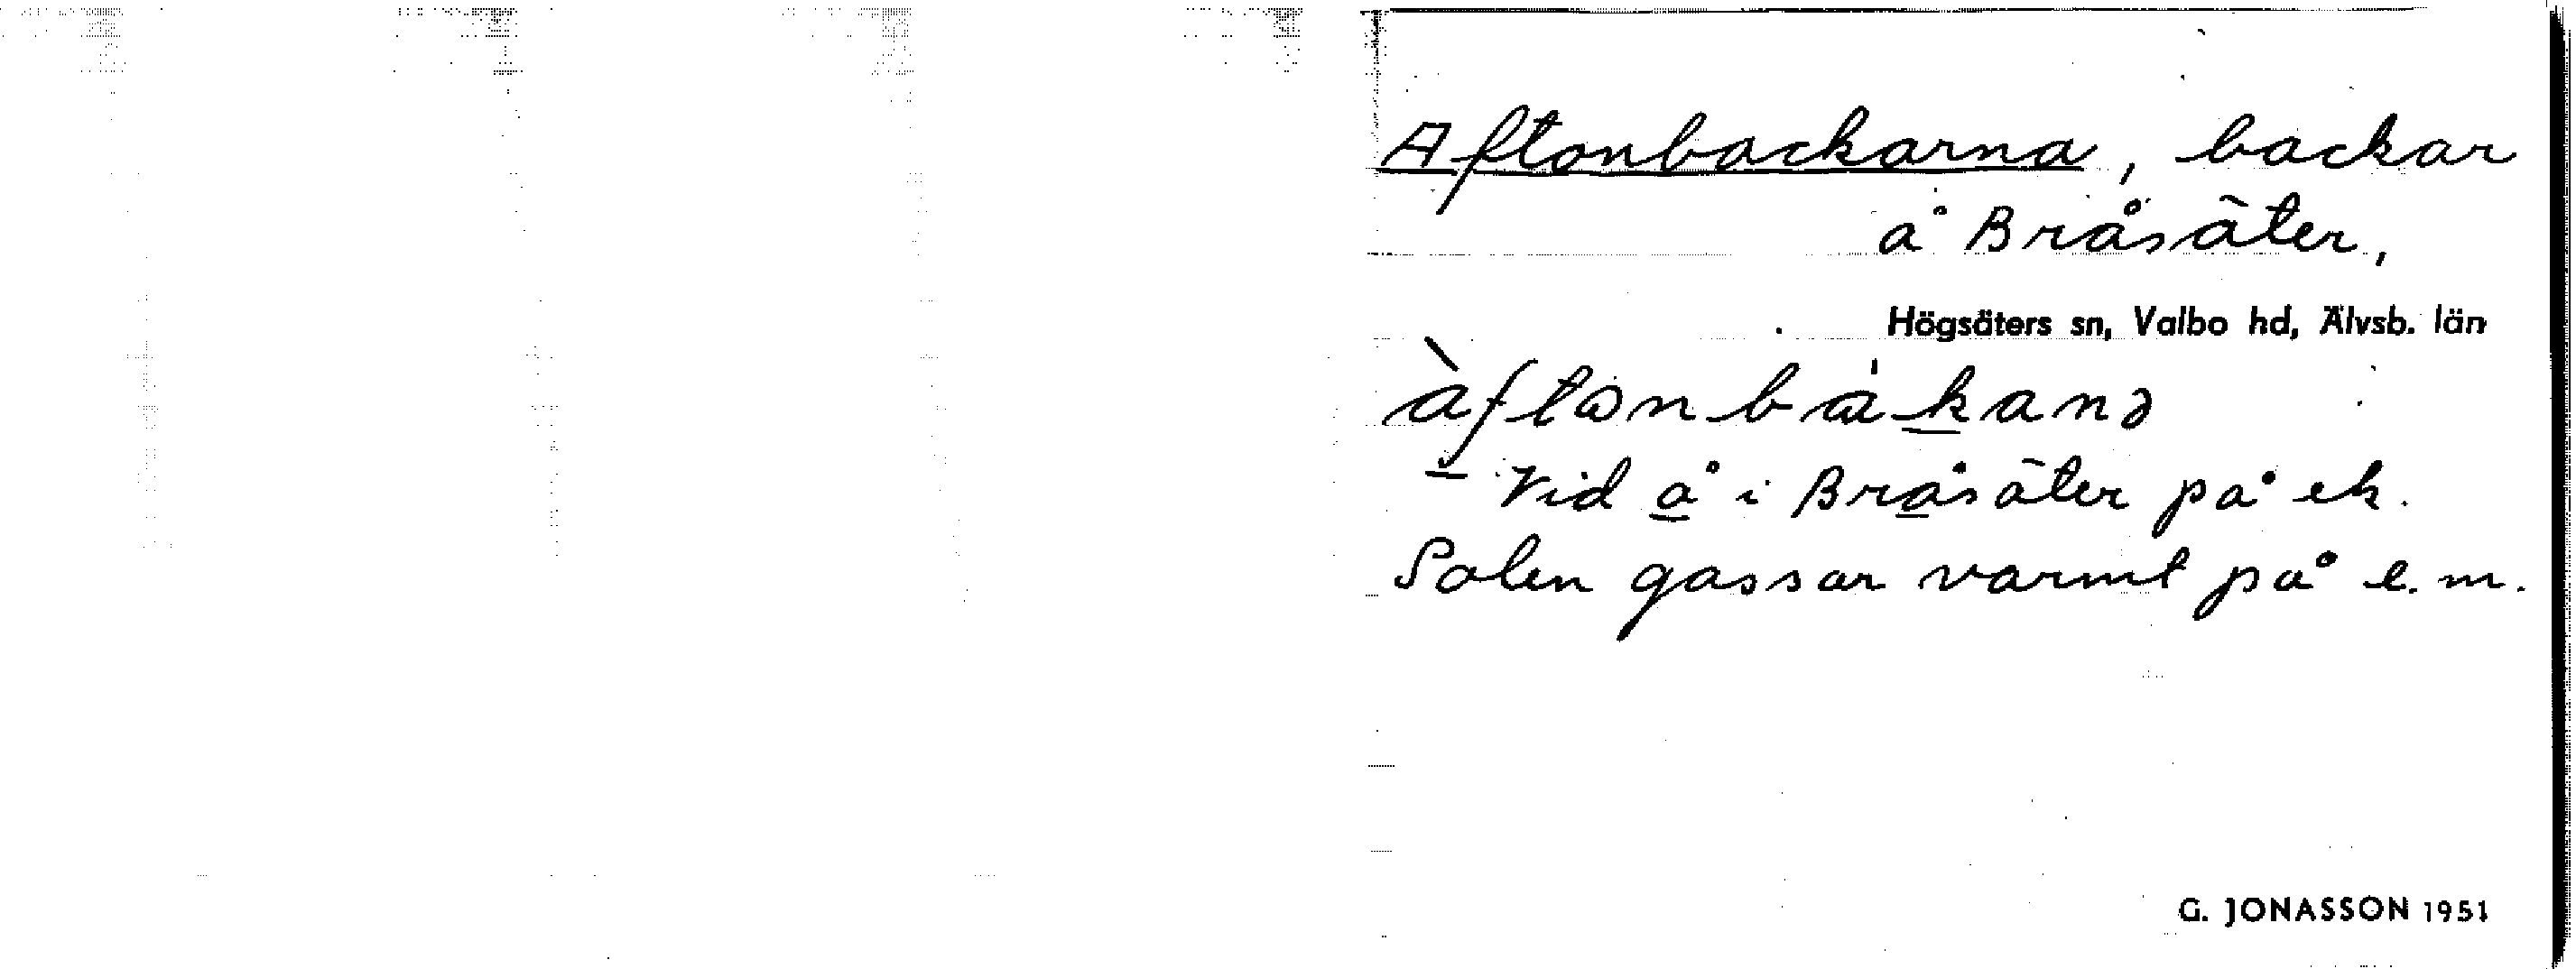 Aftonbackarna, backar
å Bråsäter,
Högsäters sn, Valbo hd, Älvsb. län
àftɷnbákanə
Vid å i Bråsäter på ek.
Solen gassar varmt på e.m.
G. JONASSON 1951